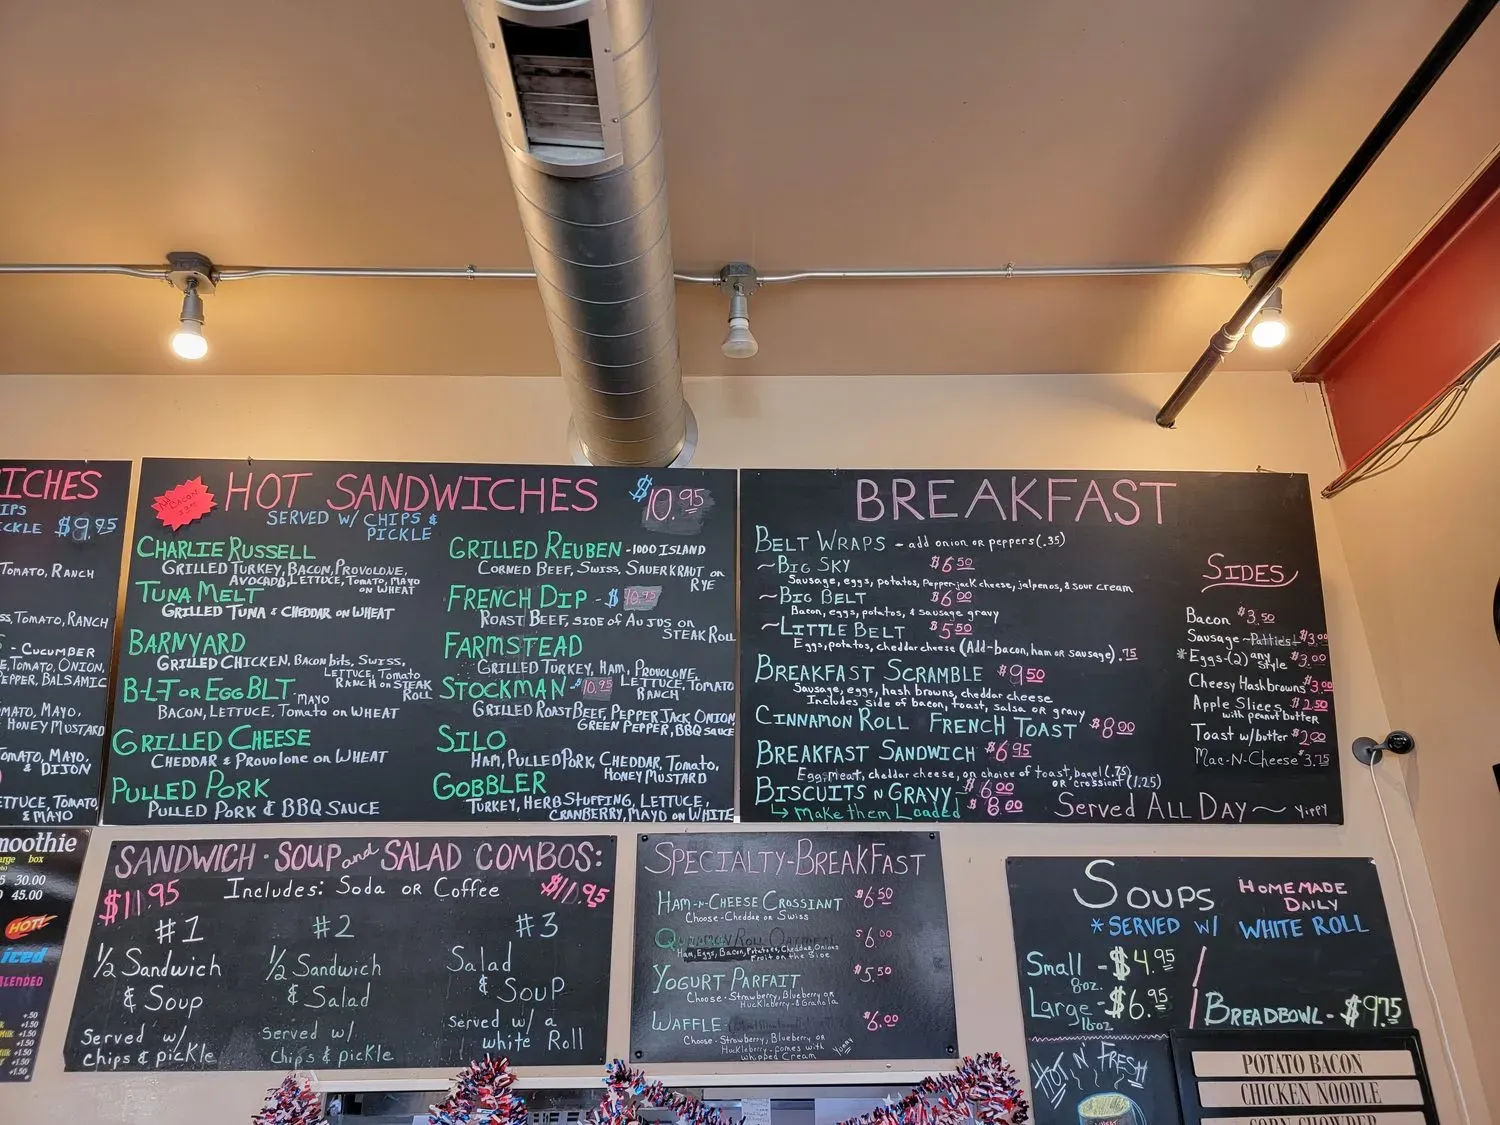 ICHES
IPS
CKLE $9.95
TOMATO, RANCH
SS, TOMATO, RANCH
- CUCUMBER
E, TOMATO, ONION,
PEPPER, BALSAMIC
MATO, MAYO,
HONEY MUSTARD
OMATO, MAYO,
& DIJON
ETTUCE, TOMATO,
& MAYO
HOT SANDWICHES $10.95
SERVED W/ CHIPS &
PICKLE
BACON
CHARLIE RUSSELL
GRILLED TURKEY, BACON, PROVOLONE,
AVOCADO, LETTUCE, TOMATO, MAYO
ON WHEAT
TUNA MELT
GRILLED TUNA & CHEDDAR ON WHEAT
BARNYARD
GRILLED CHICKEN, BACON bits, SWISS,
LETTUCE, TOMATO
RANCH ON STEAK
ROLL
B-L-T OR EGG BLT MAYO
BACON, LETTUCE, TOMATO ON WHEAT
GRILLED CHEESE
CHEDDAR & PROVOLONE ON WHEAT
PULLED PORK
PULLED PORK & BBQ SAUCE
GRILLED REUBEN - 1000 ISLAND
CORNED BEEF, SWISS, SAUERKRAUT ON
RYE
FRENCH DIP - $10.95
ROAST BEEF, SIDE OF AU JUS ON
STEAK ROLL
FARMSTEAD
GRILLED TURKEY, HAM, PROVOLONE,
LETTUCE, TOMATO
RANCH
STOCKMAN - $10.95
GRILLED ROAST BEEF, PEPPER JACK, ONION,
GREEN PEPPER, BBQ SAUCE
SILO
HAM, PULLED PORK, CHEDDAR, TOMATO,
HONEY MUSTARD
GOBBLER
TURKEY, HERB STUFFING, LETTUCE,
CRANBERRY, MAYO ON WHITE
BREAKFAST
BELT WRAPS - add onion or peppers (.35)
~BIG SKY $6.50
Sausage, eggs, potatos, Pepperjack cheese, jalpenos, & sour cream
~BIG BELT $6.00
Bacon, eggs, potatos, & sausage gravy
~LITTLE BELT $5.50
Eggs, potatos, cheddar cheese (Add-bacon, ham or sausage) .75
BREAKFAST SCRAMBLE $9.50
Sausage, eggs, hash browns, cheddar cheese
Includes side of bacon, toast, salsa or gravy
CINNAMON ROLL FRENCH TOAST $8.00
BREAKFAST SANDWICH $6.95
Egg, meat, cheddar cheese, on choice of toast, bagel (.75)
or crossiant (1.25)
BISCUITS N GRAVY $6.00
↳ Make them Loaded $8.00
Served ALL DAY~ Yippy
SIDES
Bacon $3.50
Sausage - Patties $3.00
*Eggs-(2) any style $3.00
Cheesy Hashbrowns $3.00
Apple Slices $2.50
with peanut butter
Toast w/butter $2.00
Mac-N-Cheese $3.75
moothie
arge box
30.00
45.00
HOT!
iced
BLENDED
+.50
+1.50
Milk +1.50
+1.50
+1.50
+1.50
SANDWICH · SOUP and SALAD COMBOS:
$11.95 Includes: Soda or Coffee $11.95
#1
½ Sandwich
& Soup
Served w/
chips & pickle
#2
½ Sandwich
& Salad
Served w/
Chips & pickle
#3
Salad
& Soup
Served w/ a
white Roll
SPECIALTY-BREAKFAST
HAM-N-CHEESE CROSSIANT $6.50
Choose-Cheddar or Swiss
$6.00
Ham, Eggs, Bacon, Potatoes, Cheddar, Onions
Fruit on the Side
YOGURT PARFAIT $5.50
Choose - Strawberry, Blueberry or
Huckleberry & Granola
WAFFLE- $6.00
Choose - Strawberry, Blueberry or
Huckleberry - comes with
whipped Cream Yummy
SOUPS HOMEMADE
DAILY
*SERVED W/ WHITE ROLL
Small - $4.95
8oz.
Large - $6.95
16oz
BREADBOWL - $9.75
HOT N' FRESH
POTATO BACON
CHICKEN NOODLE
CORN CHOWDER